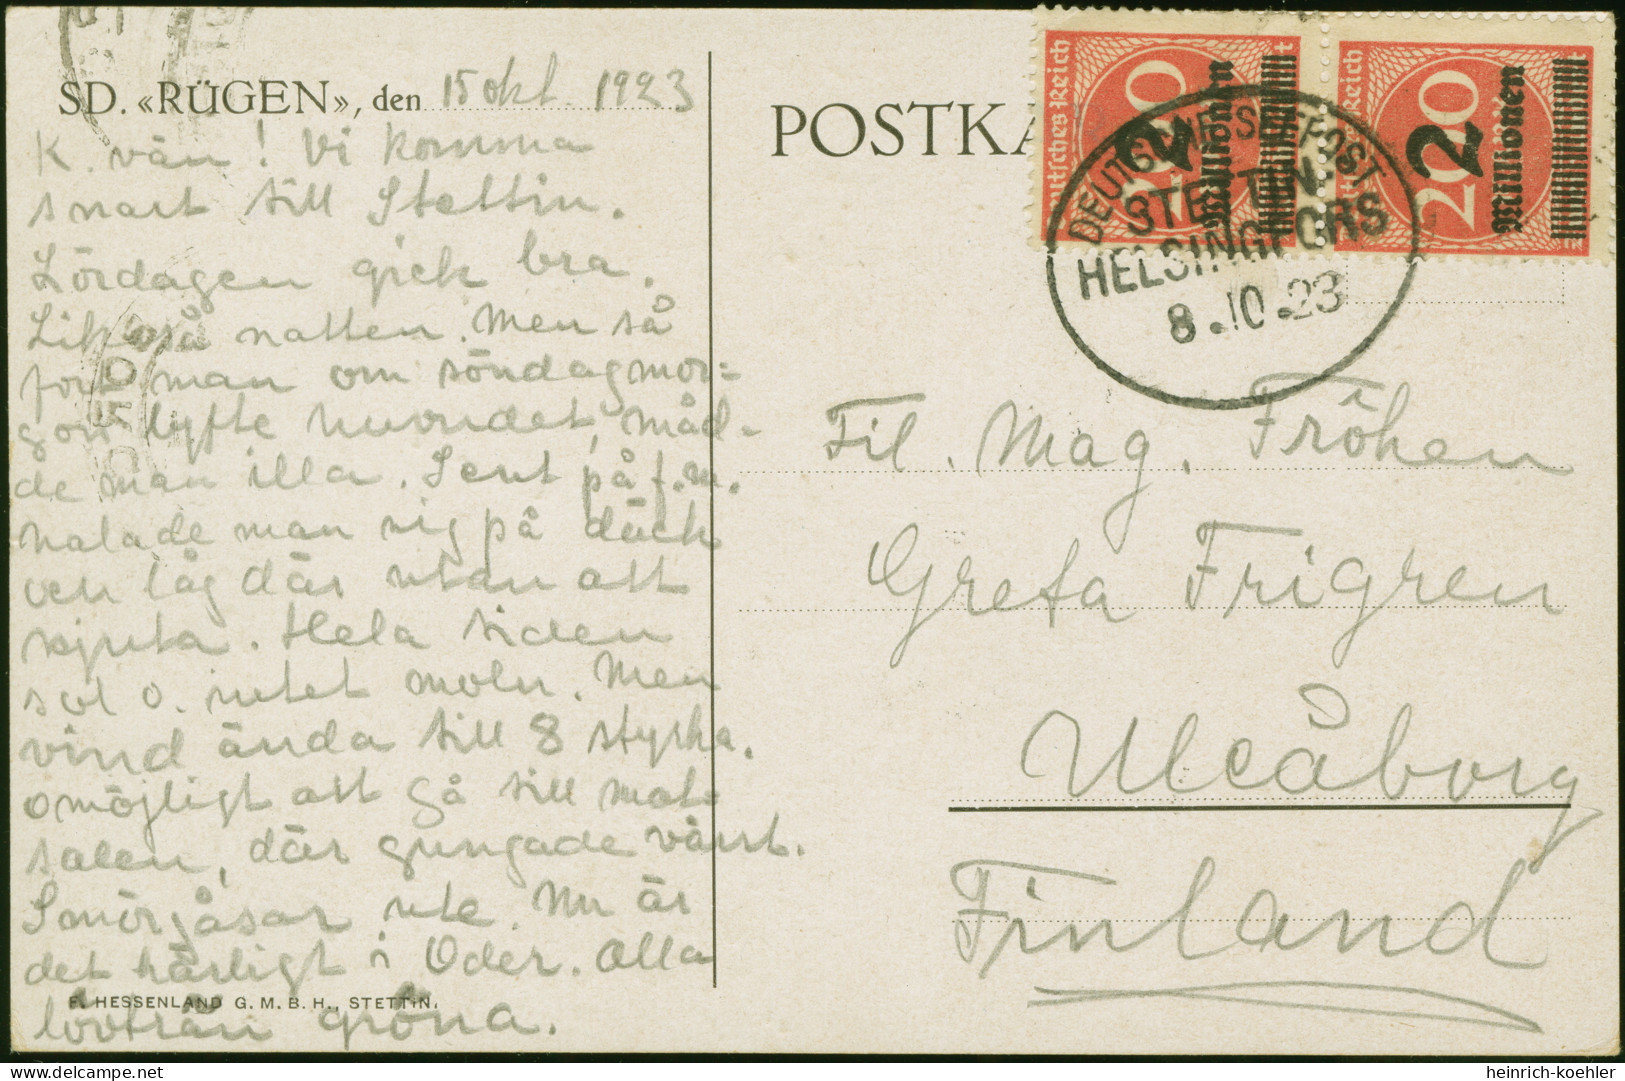 SD. «RÜGEN», den 15 okt. 1923
K. vän! Vi komma
snart till Stettin.
Lördagen gick bra.
Likaså natten. Men så
fort man om söndagmor=
gon lyfte huvudet, måd-
de man illa. Sent på f.m.
halade man sig på däck
och låg där utan att
skjuta. Hela tiden
sol o. intet moln. Men
vind ända till 8 styrka.
omöjligt att gå till mat-
salen, där gungade värst.
Smörgåsar ute. Nu är
det härligt i Oder. Alla
lövträn gröna.
F. HESSENLAND G.M.B.H., STETTIN.
POSTKA
Deutsches Reich
200
2
Millionen
Deutsches Reich
200
2
Millionen
DEUTSCHE SEEPOST
STETTIN-
HELSINGFORS
8.10.23
Fil. Mag. Fröken
Greta Frigren
Uleåborg
Finland
www.delcampe.net
heinrich-koehler